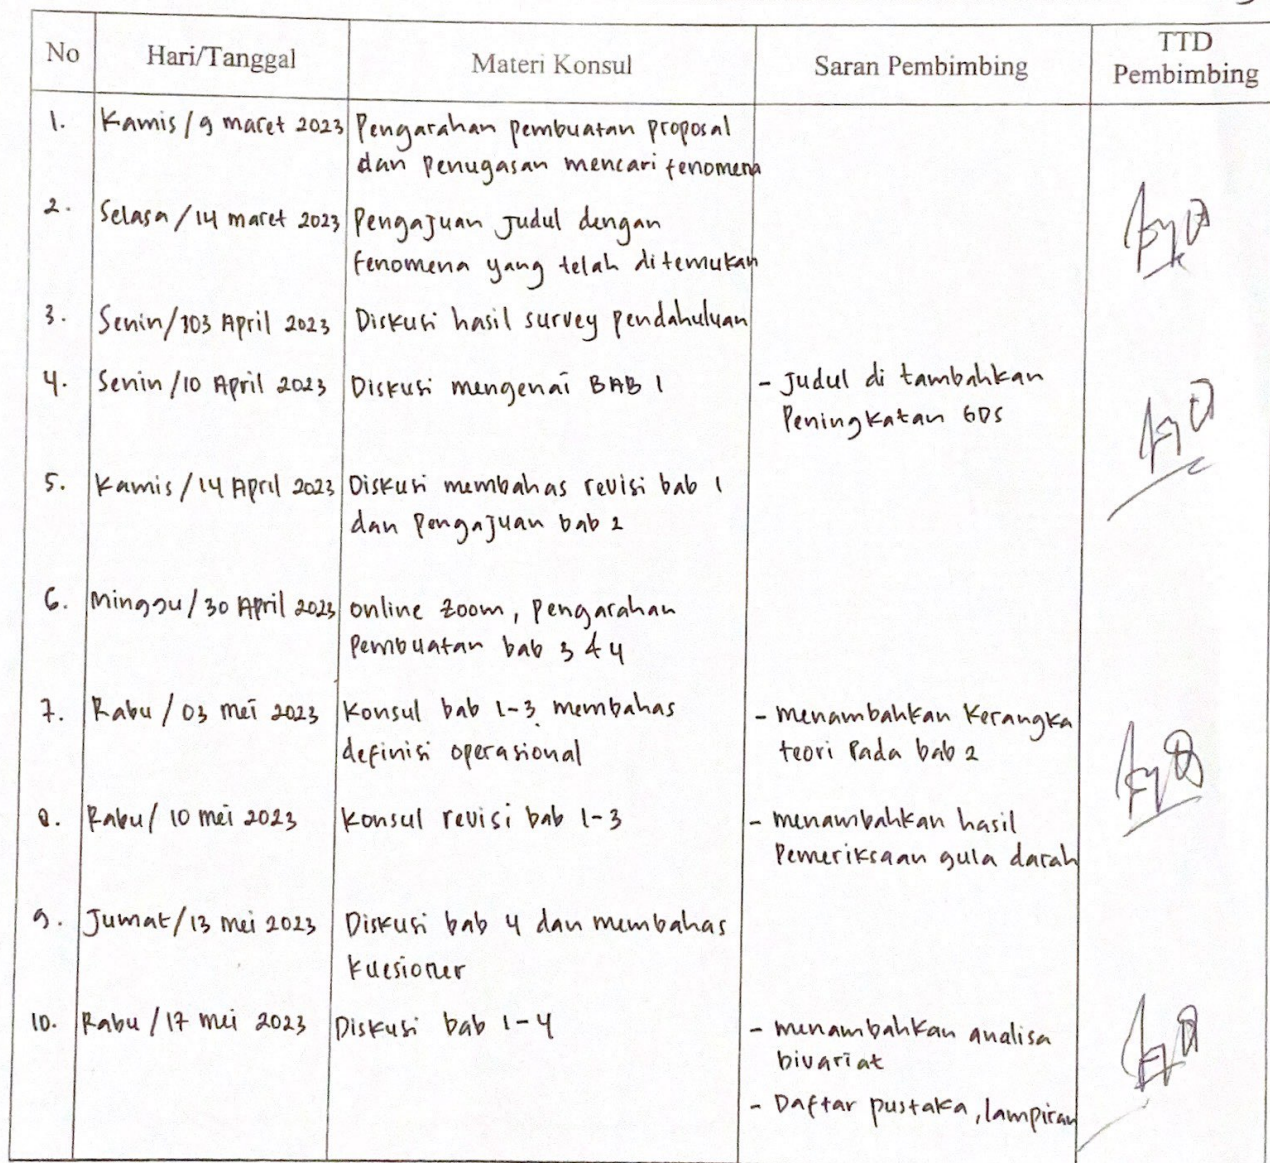 No Hari/Tanggal Materi Konsul Saran Pembimbing TTD Pembimbing
1. Kamis / 9 maret 2023 Pengarahan pembuatan proposal
dan penugasan mencari fenomena
2. Selasa / 14 maret 2023 Pengajuan Judul dengan
fenomena yang telah ditemukan
3. Senin / 103 April 2023 Diskusi hasil survey pendahuluan
4. Senin / 10 April 2023 Diskusi mengenai BAB 1 - Judul di tambahkan
Peningkatan GDS
5. Kamis / 14 April 2023 Diskusi membahas revisi bab 1
dan pengajuan bab 2
6. Minggu / 30 April 2023 online zoom, pengarahan
Pembuatan bab 3 & 4
7. Rabu / 03 mei 2023 Konsul bab 1-3 membahas - menambahkan Kerangka
definisi operasional teori Pada bab 2
8. Rabu / 10 mei 2023 Konsul revisi bab 1-3 - menambahkan hasil
Pemeriksaan gula darah
9. Jumat / 13 mei 2023 Diskusi bab 4 dan membahas
kuesioner
10. Rabu / 17 mei 2023 Diskusi bab 1-4 - menambahkan analisa
bivariat
- Daftar pustaka, lampiran